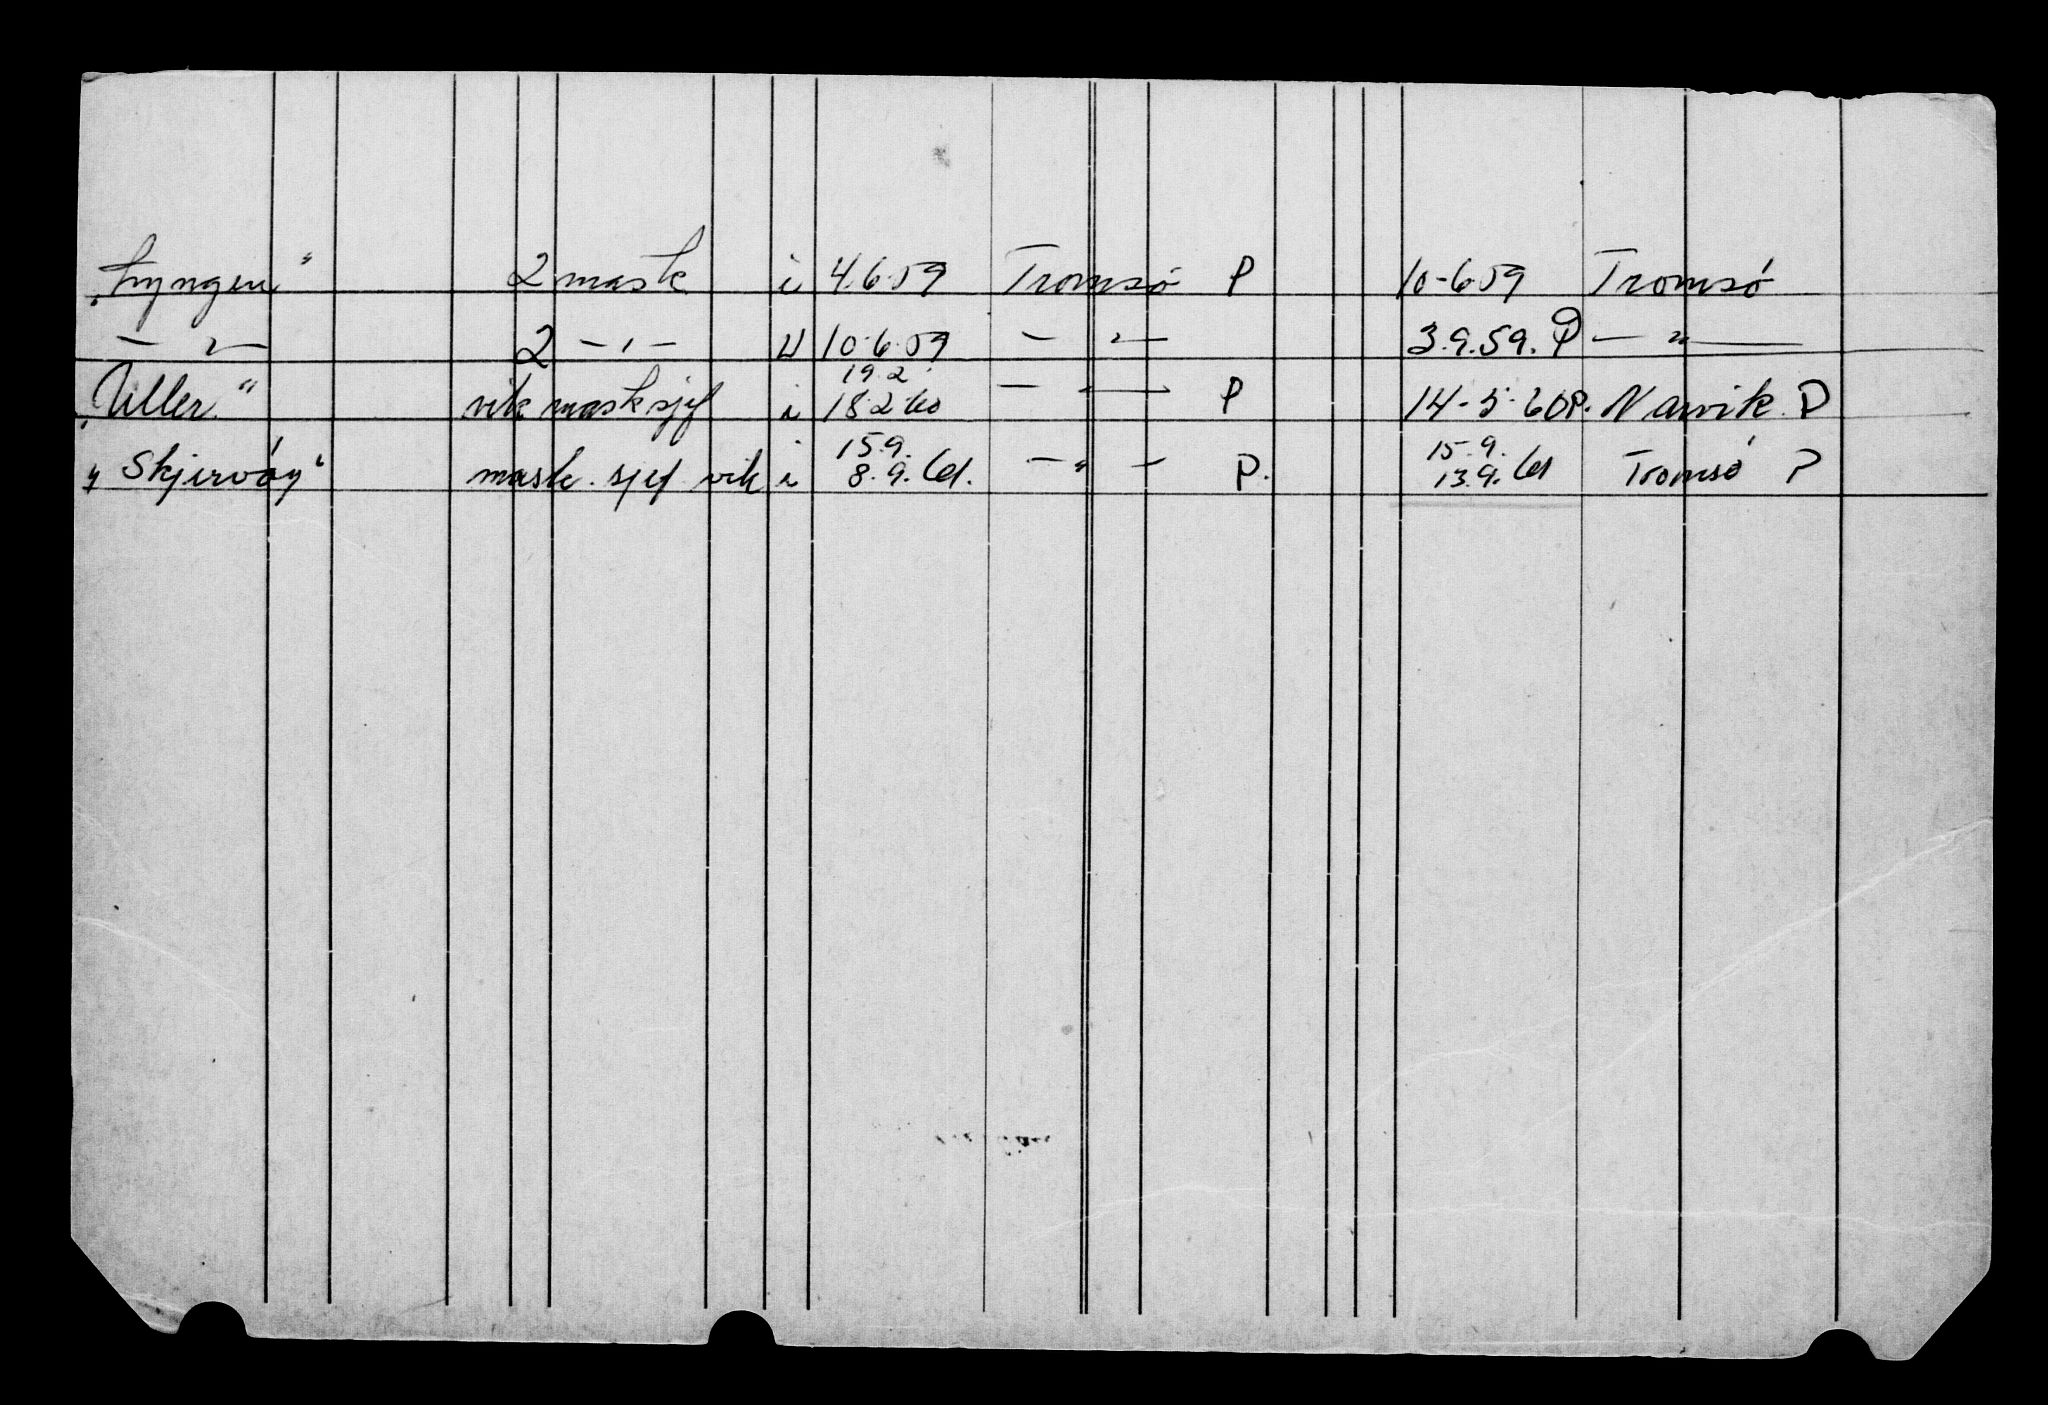 "Lyngen" 2 mask i 4.6.59 Tromsø P 10-6.59 Tromsø
— " — 2 — " — U 10.6.59 — " — 3.9.59. P — " —
19.2.
"Uller" vik masksjef i 18.2.60 — " — P 14-5-60 P. Narvik P
15.9. 15.9.
"Skjervøy" mask. sjef vik i 8.9.61. — " — P. 13.9.61 Tromsø P